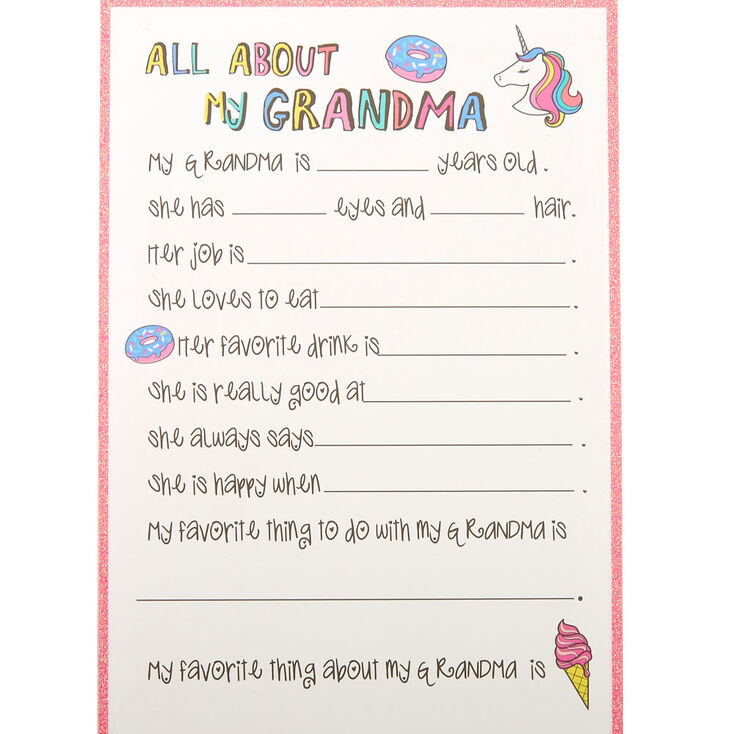 ALL ABOUT
MY GRANDMA
My GRANDMA is ________ years old.
She has ________ eyes and ________ hair.
Her job is ________.
She loves to eat ________.
Her favorite drink is ________.
She is really good at ________.
She always says ________.
She is happy when ________.
My favorite thing to do with my GRANDMA is
________.
My favorite thing about my GRANDMA is